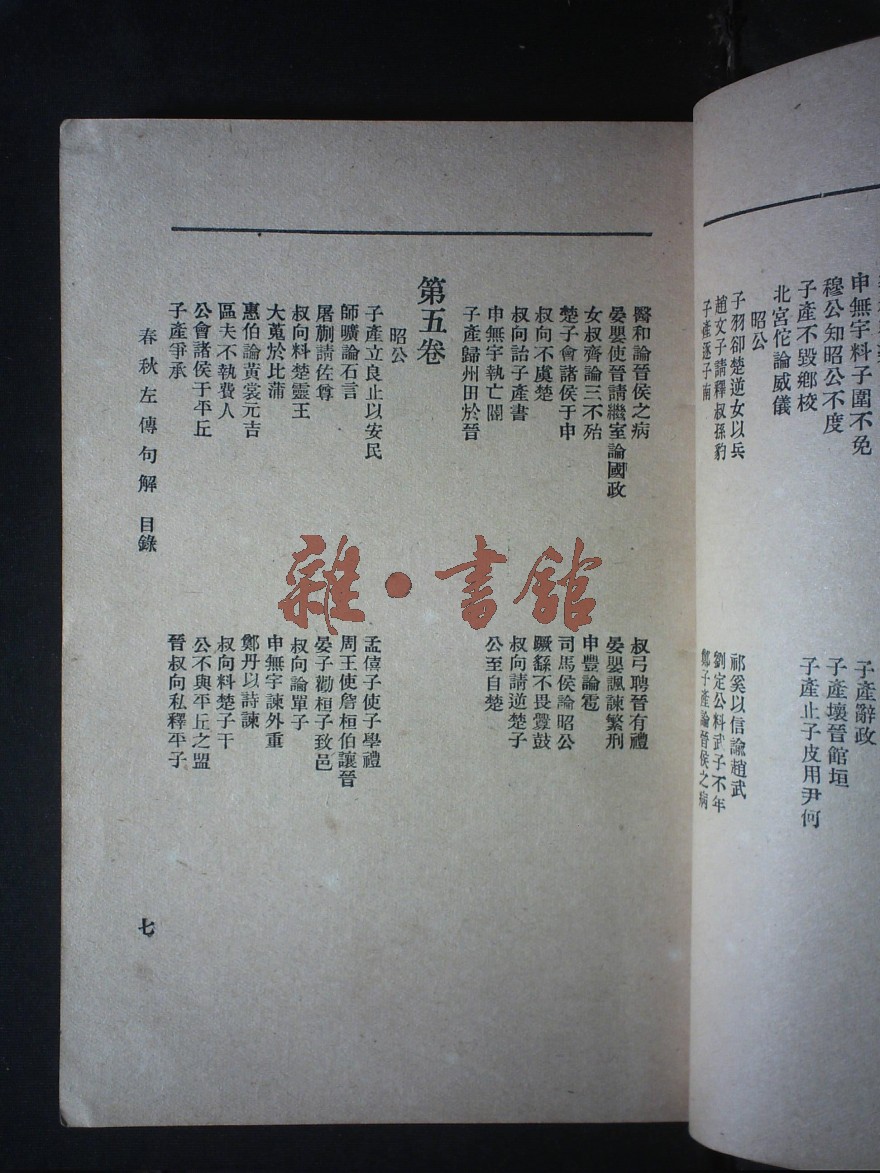 申無宇料子圍不免
穆公知昭公不度
子產不毀鄉校
北宮佗論威儀
昭公
子羽卻楚逆女以兵
趙文子請釋叔孫豹
子產逐子南
子產辭政
子產壞晉館垣
子產止子皮用尹何
祁奚以信諭趙武
劉定公料武子不年
鄭子產論晉侯之病
醫和論晉侯之病
晏嬰使晉請繼室論國政
女叔齊論三不殆
楚子會諸侯于申
叔向不虞楚
叔向詒子產書
申無宇執亡閽
子產歸州田於晉
叔弓聘晉有禮
晏嬰諷諫繁刑
申豐論雹
司馬侯論昭公
蹶繇不畏釁鼓
叔向請逆楚子
公至自楚
第五卷
昭公
子產立良止以安民
師曠論石言
屠蒯請佐尊
叔向料楚靈王
大蒐於比蒲
惠伯論黃裳元吉
區夫不執費人
公會諸侯于平丘
子產爭承
孟僖子使子學禮
周王使詹桓伯讓晉
晏子勸桓子致邑
叔向論單子
申無宇諫外重
鄭丹以詩諫
叔向料楚子干
公不與平丘之盟
晉叔向私釋平子
春秋左傳句解 目錄
七
雜·書館